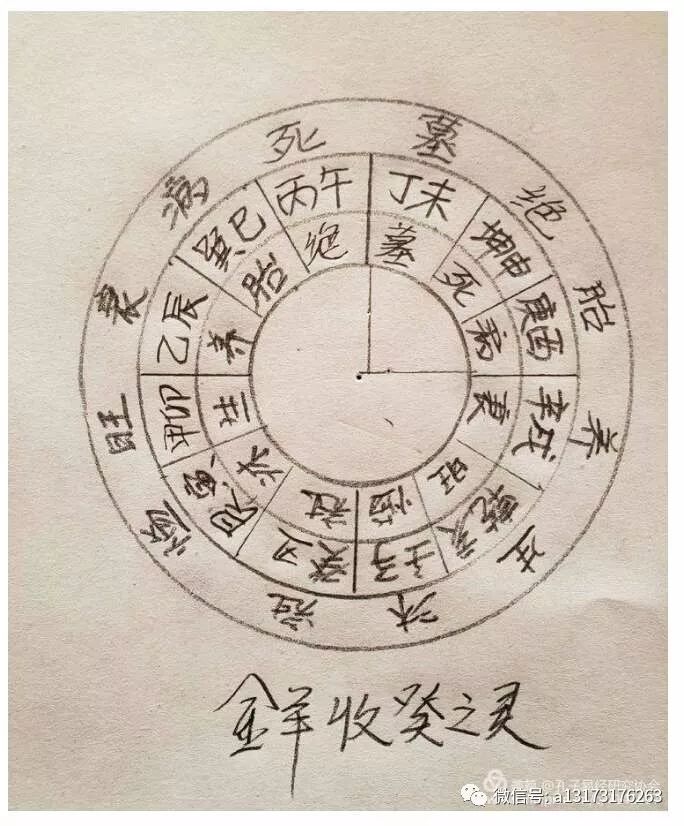 死 墓 绝 胎 养 生 沐 冠 旺 衰 病
丙午 丁未 坤申 庚酉 辛戌 乾亥 壬子 癸丑 艮寅 甲卯 乙辰 巽巳
绝 墓 死 病 衰 旺 冠 沐 生 养 胎
金羊收癸之灵
@孔子易经研究协会
微信号: a13173176263